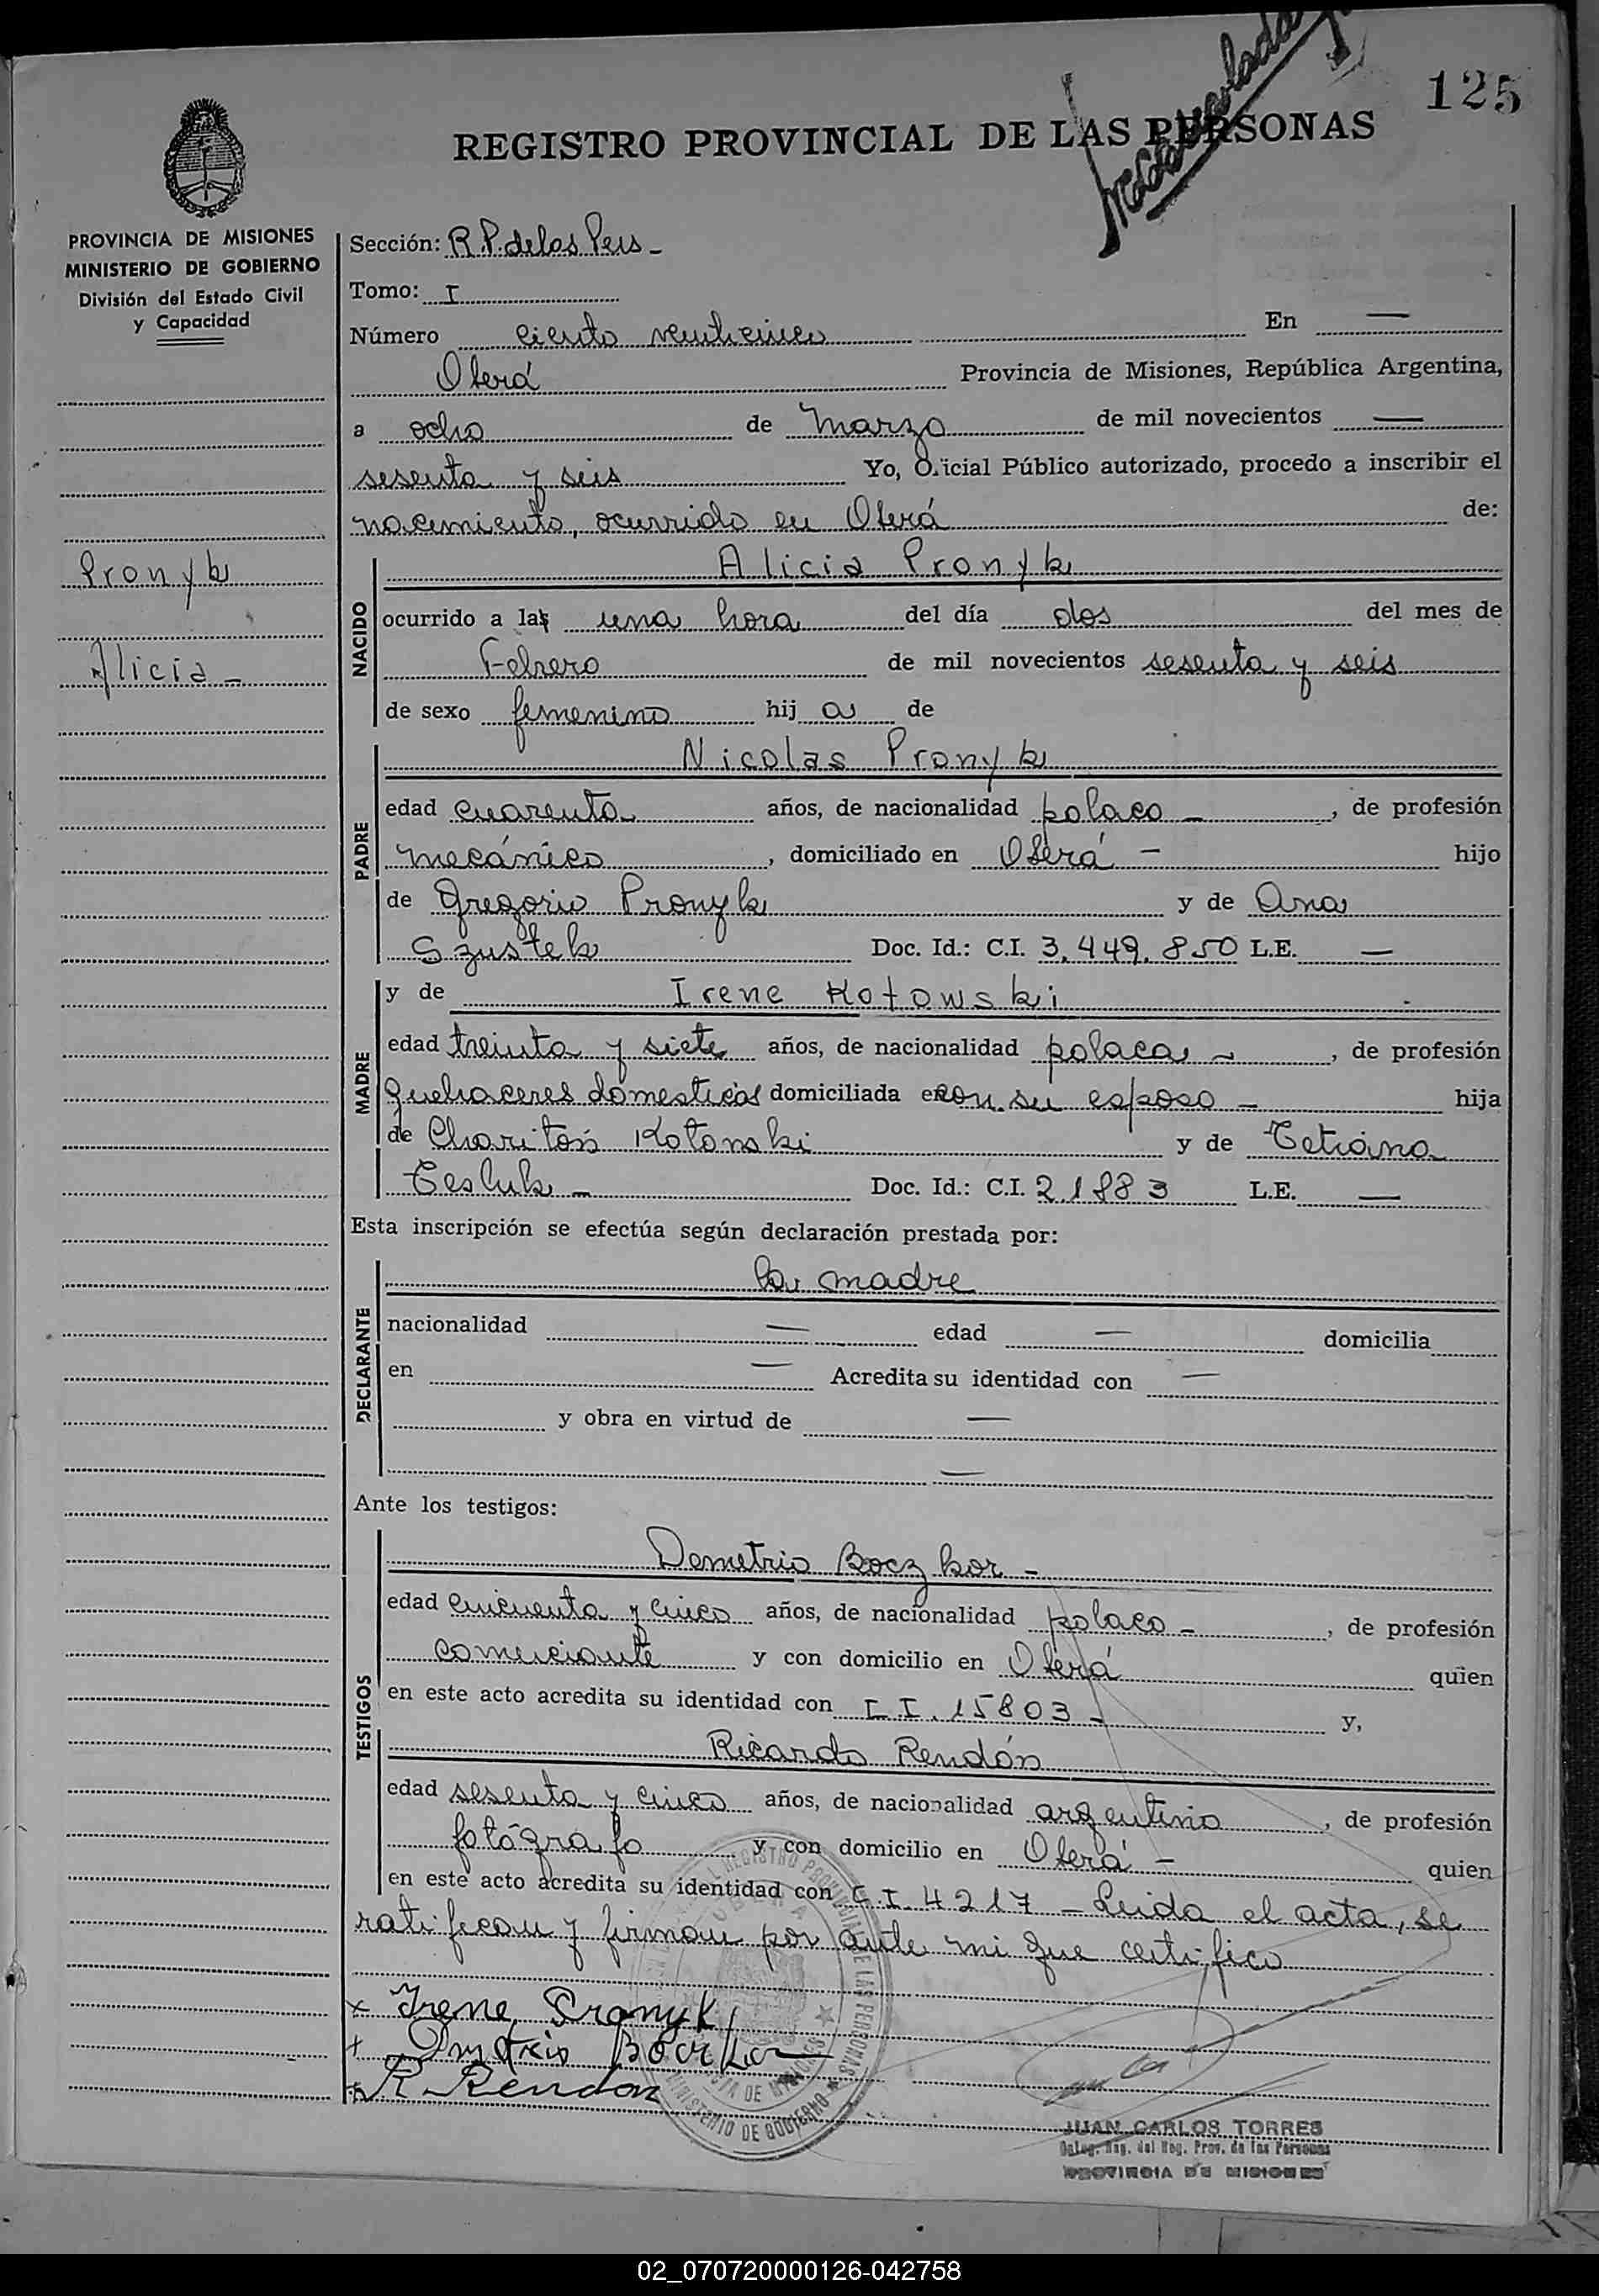 125
REGISTRO PROVINCIAL DE LAS PERSONAS
PROVINCIA DE MISIONES
MINISTERIO DE GOBIERNO
División del Estado Civil
y Capacidad
Pronyk
Alicia -
Sección: R.P. de las Pers -
Tomo: I
Número ciento veinticinco En —
Oberá Provincia de Misiones, República Argentina,
a ocho de Marzo de mil novecientos —
sesenta y seis Yo, Oficial Público autorizado, procedo a inscribir el
nacimiento, ocurrido en Oberá de:
NACIDO
Alicia Pronyk
ocurrido a las una hora del día dos del mes de
Febrero de mil novecientos sesenta y seis
de sexo femenino hij a de
PADRE
Nicolas Pronyk
edad cuarenta años, de nacionalidad polaco - , de profesión
mecánico , domiciliado en Oberá - hijo
de Gregorio Pronyk y de Ana
Szustek Doc. Id.: C.I. 3.449.850 L.E. —
MADRE
y de Irene Kotowski
edad treinta y siete años, de nacionalidad polaca - , de profesión
Quehaceres domesticos domiciliada en con su esposo - hija
de Charitón Kotowski y de Tetiana
Tesluk - Doc. Id.: C.I. 21883 L.E. —
Esta inscripción se efectúa según declaración prestada por:
DECLARANTE
la madre
nacionalidad — edad — domicilia
en — Acredita su identidad con —
y obra en virtud de —
—
Ante los testigos:
TESTIGOS
Demetrio Boczkor -
edad cincuenta y cinco años, de nacionalidad polaco - , de profesión
comerciante y con domicilio en Oberá quien
en este acto acredita su identidad con C.I. 15803 - y,
Ricardo Rendón
edad sesenta y cinco años, de nacionalidad argentino , de profesión
fotógrafo y con domicilio en Oberá - quien
en este acto acredita su identidad con C.I. 4217 - Leida el acta, se
ratifican y firman por ante mi que certifico
x Irene Pronyk
+ Dmetrio Boczkor
x R Rendon
JUAN CARLOS TORRES
Deleg. Reg. del Reg. Prov. de las Personas
PROVINCIA DE MISIONES
02_070720000126-042758